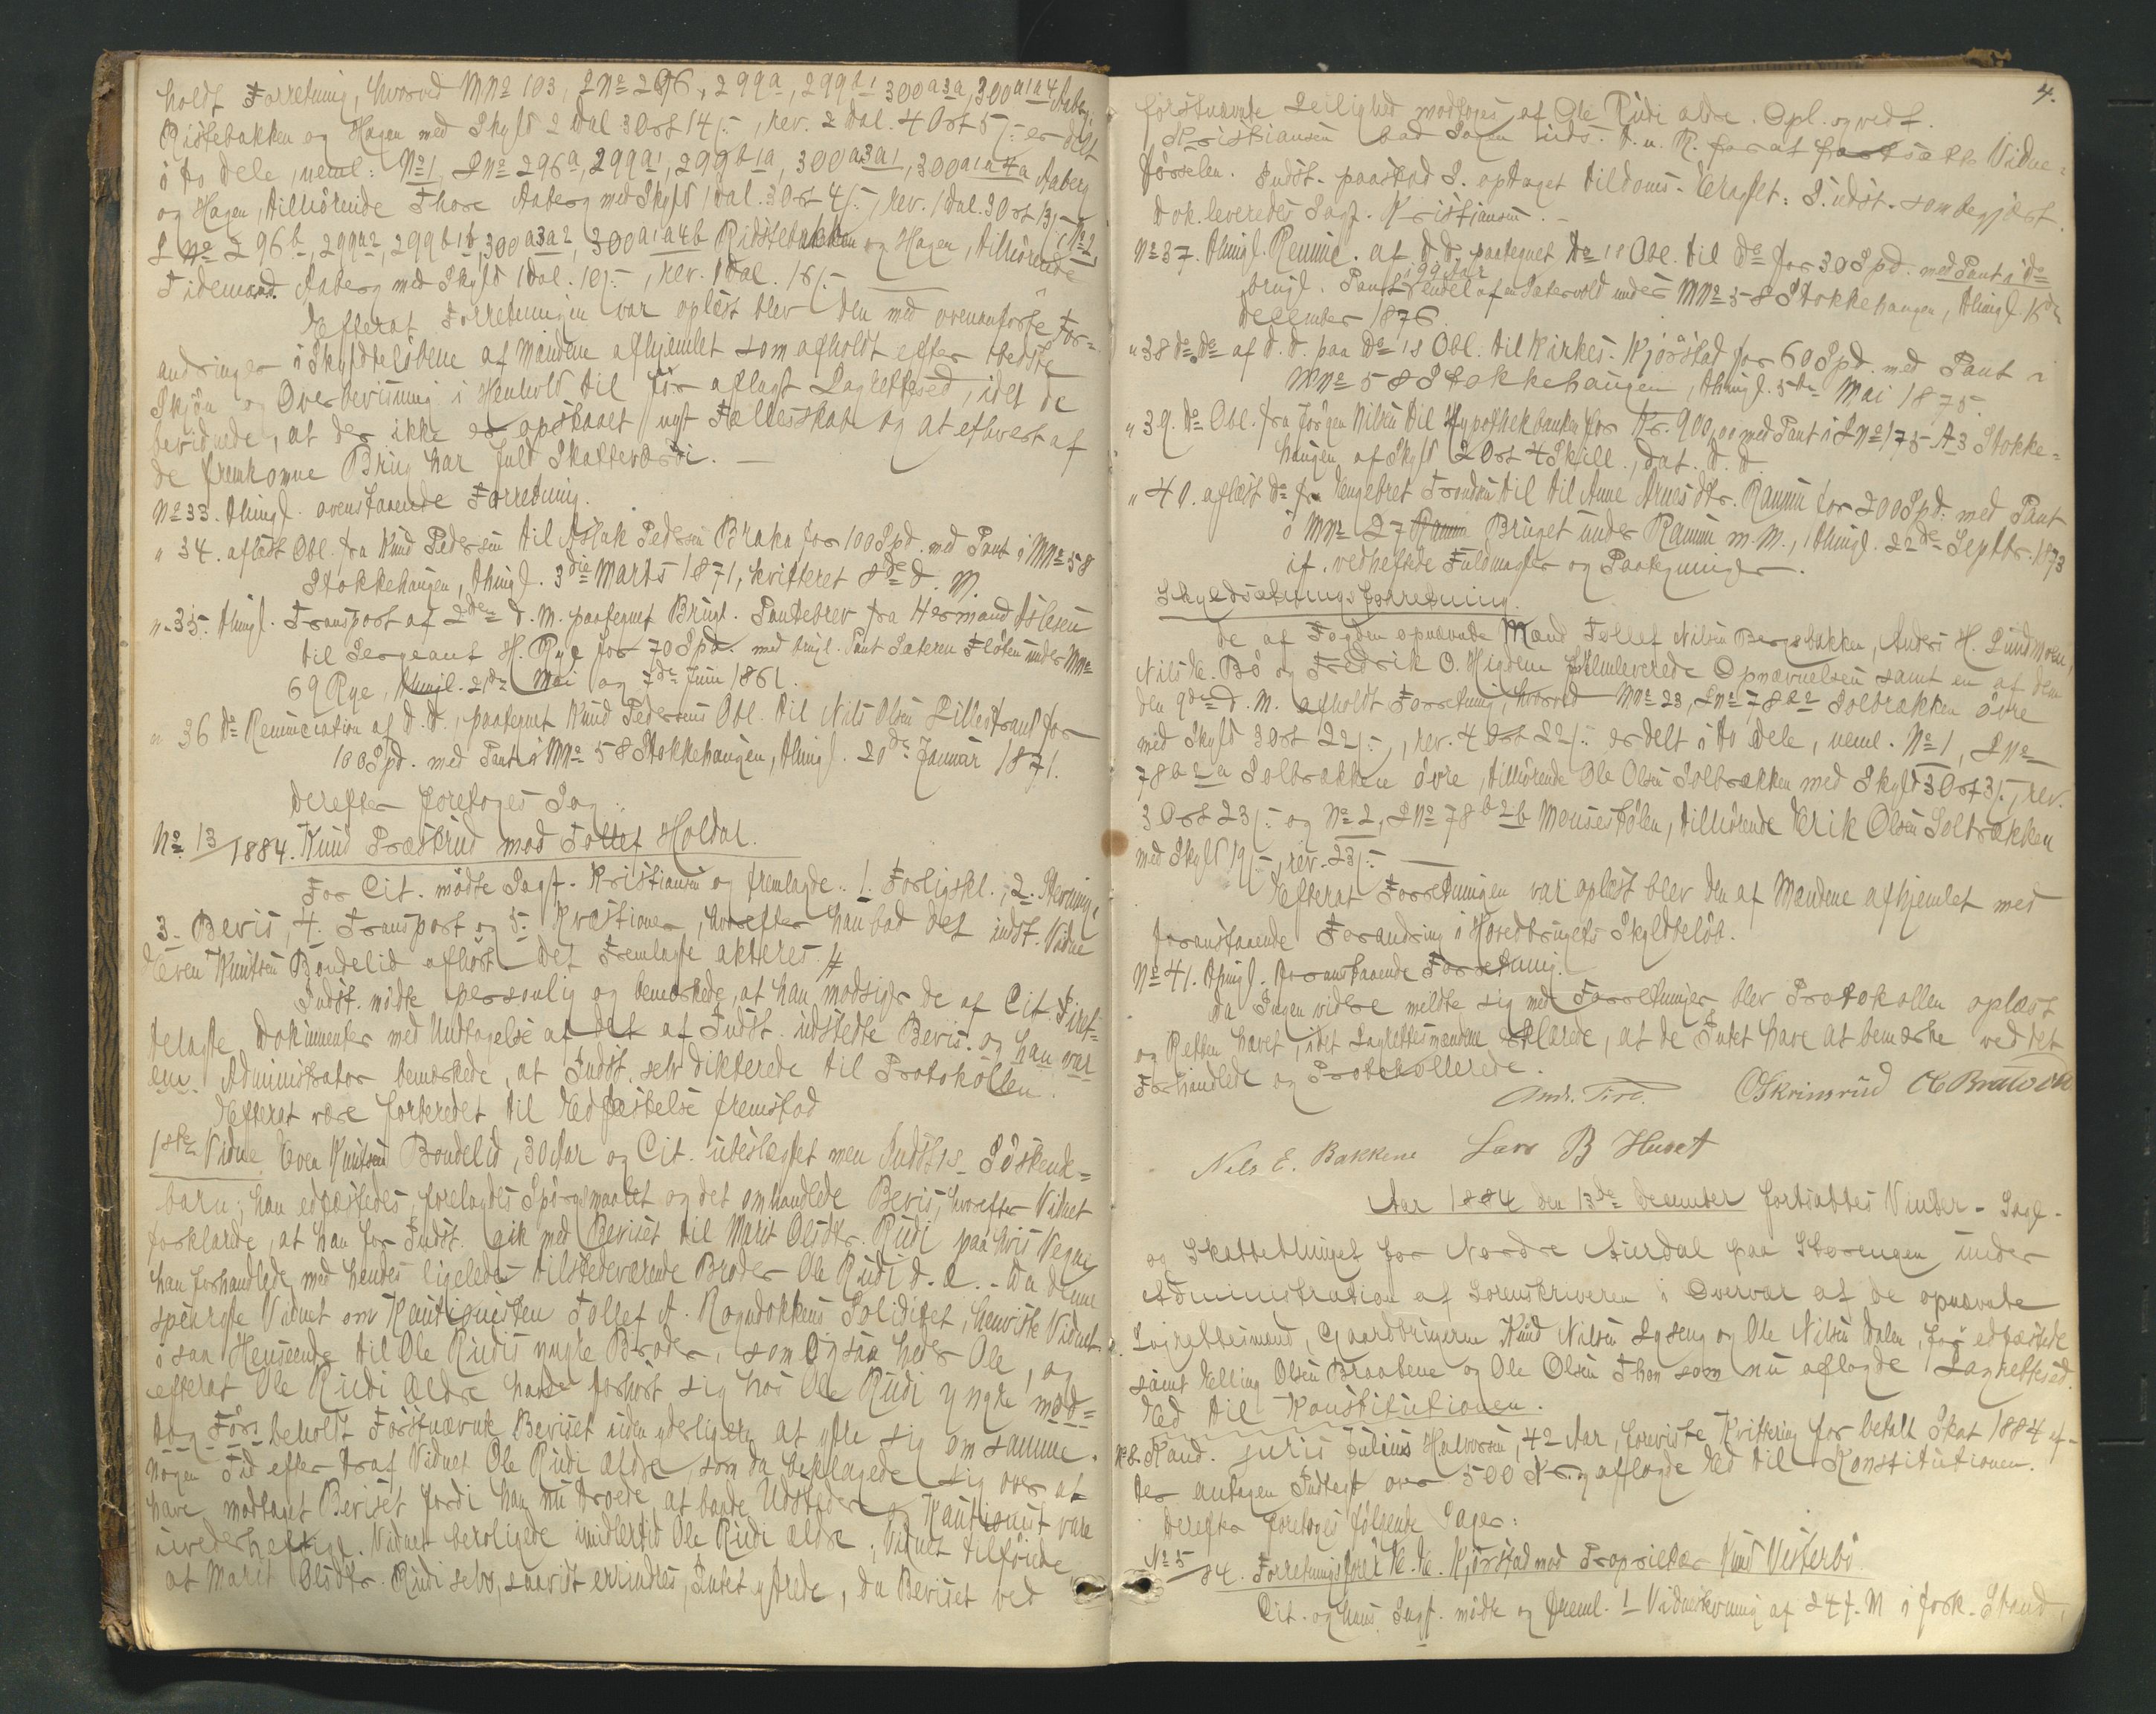 holdt Forretning, hvorved MNo 103, LNo 296, 299a, 299b1 300a3a, 300a1a4 Aaberg,
Ristebakken og Hagen med Skyld 2 Dal. 3 Ort 14 ß, rev. 2 Dal. 4 Ort 5 ß er delt
i to Dele, neml: No 1, LNo 296a, 299a1, 299b1a, 300a3a1, 300a1a4a Aaberg
og Hagen, tilhørende Thore Aaberg med Skyld 1 Dal. 3 Ort 4 ß, rev. 1 Dal. 3 Ort 13 ß; No 2,
LNo 296b, 299a2, 299b1b, 300a3a2, 300a1a4b Ristebakken og Hagen, tilhørende
Tidemand Aaberg med Skyld 1 Dal. 10 ß, rev. 1 Dal. 16 ß.
Efterat Forretningen var oplæst blev den med ovenanførte For-
andringer i Skyldbeløbene af Mændene afhjemlet som afholdt efter bedste
Skjøn og Overbevisning i Henhold til før aflagt Lagrettesed, idet de
bevidnede, at der ikke er opstaaet nyt Fællesskab og at ethvert af
de fremkomne Brug har fuld Skatteværdi. —
No 33. thingl. ovenstaaende Forretning.
" 34. aflæst Obl. fra Knud Pedersen til Aslak Pedersen Braka for 100 Spd. med Pant i MNo 58
Stokkehaugen, thingl. 3die Marts 1871, kvitteret 8de d. M.
" 35. thingl. Transport af 2den d. M. paategnet Brugl. Pantebrev fra Hermand Islesen
til Sergeant H. Rye for 70 Spd. med brugl. Pant Sæteren Fløten under MNo
69 Rye, thingl. 21de Mai og 7de Juni 1861.
" 36 do Renunciation af d. D., paategnet Knud Pedersens Obl. til Nils Olsen Lillestrand for
100 Spd. med Pant i MNo 58 Stokkehaugen, thingl. 20de Januar 1871.
Derefter foretoges Sag:
No 13/1884. Knud Præstrud mod Tollef Holdal.
For Cit. mødte Sagf. Kristiansen og fremlagde: 1. Forligskl., 2. Stevning,
3. Bevis, 4. Transport og 5. Kvæstioner, hvorefter han bad det indst. Vidne
Even Knutsen Bondelid afhørt. Det Fremlagte akteres.
Indst. mødte personlig og bemærkede, at han modsiger de af Cit. Fret-
telagte Dokumenter med Undtagelse af det af Indst. udstedte Bevis. og han var
en. Administrator bemærkede, at Indst. selv dikterede til Protokollen.
Efterat være forberedet til Edfæstelse fremstod
1ste Vidne Even Knutsen Bondelid, 30 Aar og Cit. ubeslægtet men Indst.s Søskende-
barn; han edfæstedes, forelagdes Spørgsmaalet og det omhandlede Bevis, hvorefter Vidnet
forklarede, at han for Indst. gik med Beviset til Marit Olsdtr. Rudi paa hvis Vegne
han forhandlede med hendes ligeledes tilstedeværende Broder Ole Rudi d. æ. – Da denne
spurgte Vidnet om Kautionisten Tollef A. Rogndokkens Soliditet, henviste Vidnet
i saa Henseende til Ole Rudis yngre Broder, som ogsaa heder Ole, og
efterat Ole Rudi ældre havde forhørt sig hos Ole Rudi yngre mod-
tog Før beholdt Førstnævnte Beviset uden yderligere at yttre sig om samme.
Nogen Tid efter traf Vidnet Ole Rudi ældre, som da beklagede sig over at
have modtaget Beviset fordi han nu troede, at baade Udsteder og Kautionist vare
uvederheftige. Vidnet beroligede imidlertid Ole Rudi ældre; Vidnet tilføiede
at Marit Olsdtr. Rudi selv, saavidt erindres, Intet yttrede, da Beviset ved
4.
førstnævnte Leilighed modtoges af Ole Rudi ældre. Opl. og vedt.
Kristiansen bad Sagen uds. t. n. R. for at fortsætte Vidne-
førselen. Indst. paastod S. optaget til Doms. Eragtet: S. udst. som begjært.
Dok. leveredes Sagf. Kristiansen. –
No 37. thingl. Renunc. af d. D. paategnet Do's Obl. til Do for 30 Spd. med Pant i Do
brugl. Pant i 99 Aar Endel af en Sætervold under MNo 58 Stokkehaugen, thingl. 15de
December 1876.
" 38 do do af d. D. paa Do's Obl. til Kirkes. Kjørstad for 60 Spd. med Pant i
MNo 58 Stokkehaugen, thingl. 5te Mai 1875.
" 39. do Obl. fra Jørgen Nilsen til Hypothekbanken for Kr. 900,00 med Pant i LNo 175 A3 Stokke-
haugen af Skyld 2 Ort 4 Skill., dat. d. D.
" 40. aflæst do fra Engebret Trondsen til til Anne Arnesdtr. Ranum for 200 Spd. med Pant
i MNo 27 Ranum Bruget under Ranum m. M., thingl. 22de Septbr. 1873
if. vedheftede Fuldmagter og Paategninger.
Skyldsætningsforretning.
De af Fogden opnævnte Mænd Tollef Nilsen Bergsbakken, Anders H. Lundmoen,
Nils E. Bø og Fredrik O. Higdem fremleverede Opnævnelsen samt en af dem
den 9de d. M. afholdt Forretning, hvorved MNo 23, LNo 78b2 Solbrækken øvre
med Skyld 3 Ort 22 ß, rev. 4 Ort 22 ß er delt i to Dele, neml. No 1, LNo
78b2a Solbrækken øvre, tilhørende Ole Olsen Solbrækken med Skyld 3 Ort 3 ß, rev.
3 Ort 23 ß og No 2, LNo 78b2b Mousestølen, tilhørende Erik Olsen Solbrækken
med Skyld 19 ß, rev. 23 ß —
Efterat Forretningen var oplæst blev den af Mændene afhjemlet med
foranstaaende Forandring i Hovedbrugets Skyldbeløb.
No 41. thingl. foranstaaende Forretning.
Da Ingen videre meldte sig med Forretninger blev Protokollen oplæst
og Retten hævet, idet Lagrettesmændene erklærede, at de Intet have at bemærke ved det
Forhandlede og Protokollerede.
Andr. OSkrinsrud
Nels E. Bakkene Lars B Huset
Aar 1884 den 13de December fortsattes Vinter-Sage-
og Skattethinget for Nordre Aurdal paa Storengen under
Administration af Sorenskriveren i Overvær af de opnævnte
Lagrettesmænd, Gaardbrugerne Knud Nilsen Lyseng og Ole Nilsen Dalen, før edfæstede
samt Elling Olsen Braatene og Ole Olsen Thon som nu aflagde Lagrettesed.
Ed til Konstitutionen.
Kand. juris Julius Halvorsen, 42 Aar, foreviste Kvittering for betalt Skat 1884 ef-
ter antagen Indtægt over 500 Kr. og aflagde Ed til Konstitutionen.
Derefter foretoges følgende Sager:
No 5/84. Forretningsfører E. E. Kjørstad mod Proprietær Knud Vesterbø.
Cit. og hans Sagf. mødte og freml. 1 Vidnestevning af 24 f. M i fork. Stand,